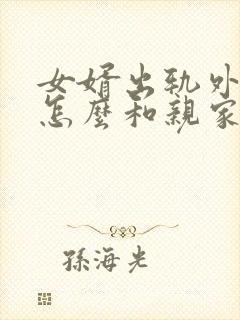 女婿出轨外
怎麼和親家
孫海光